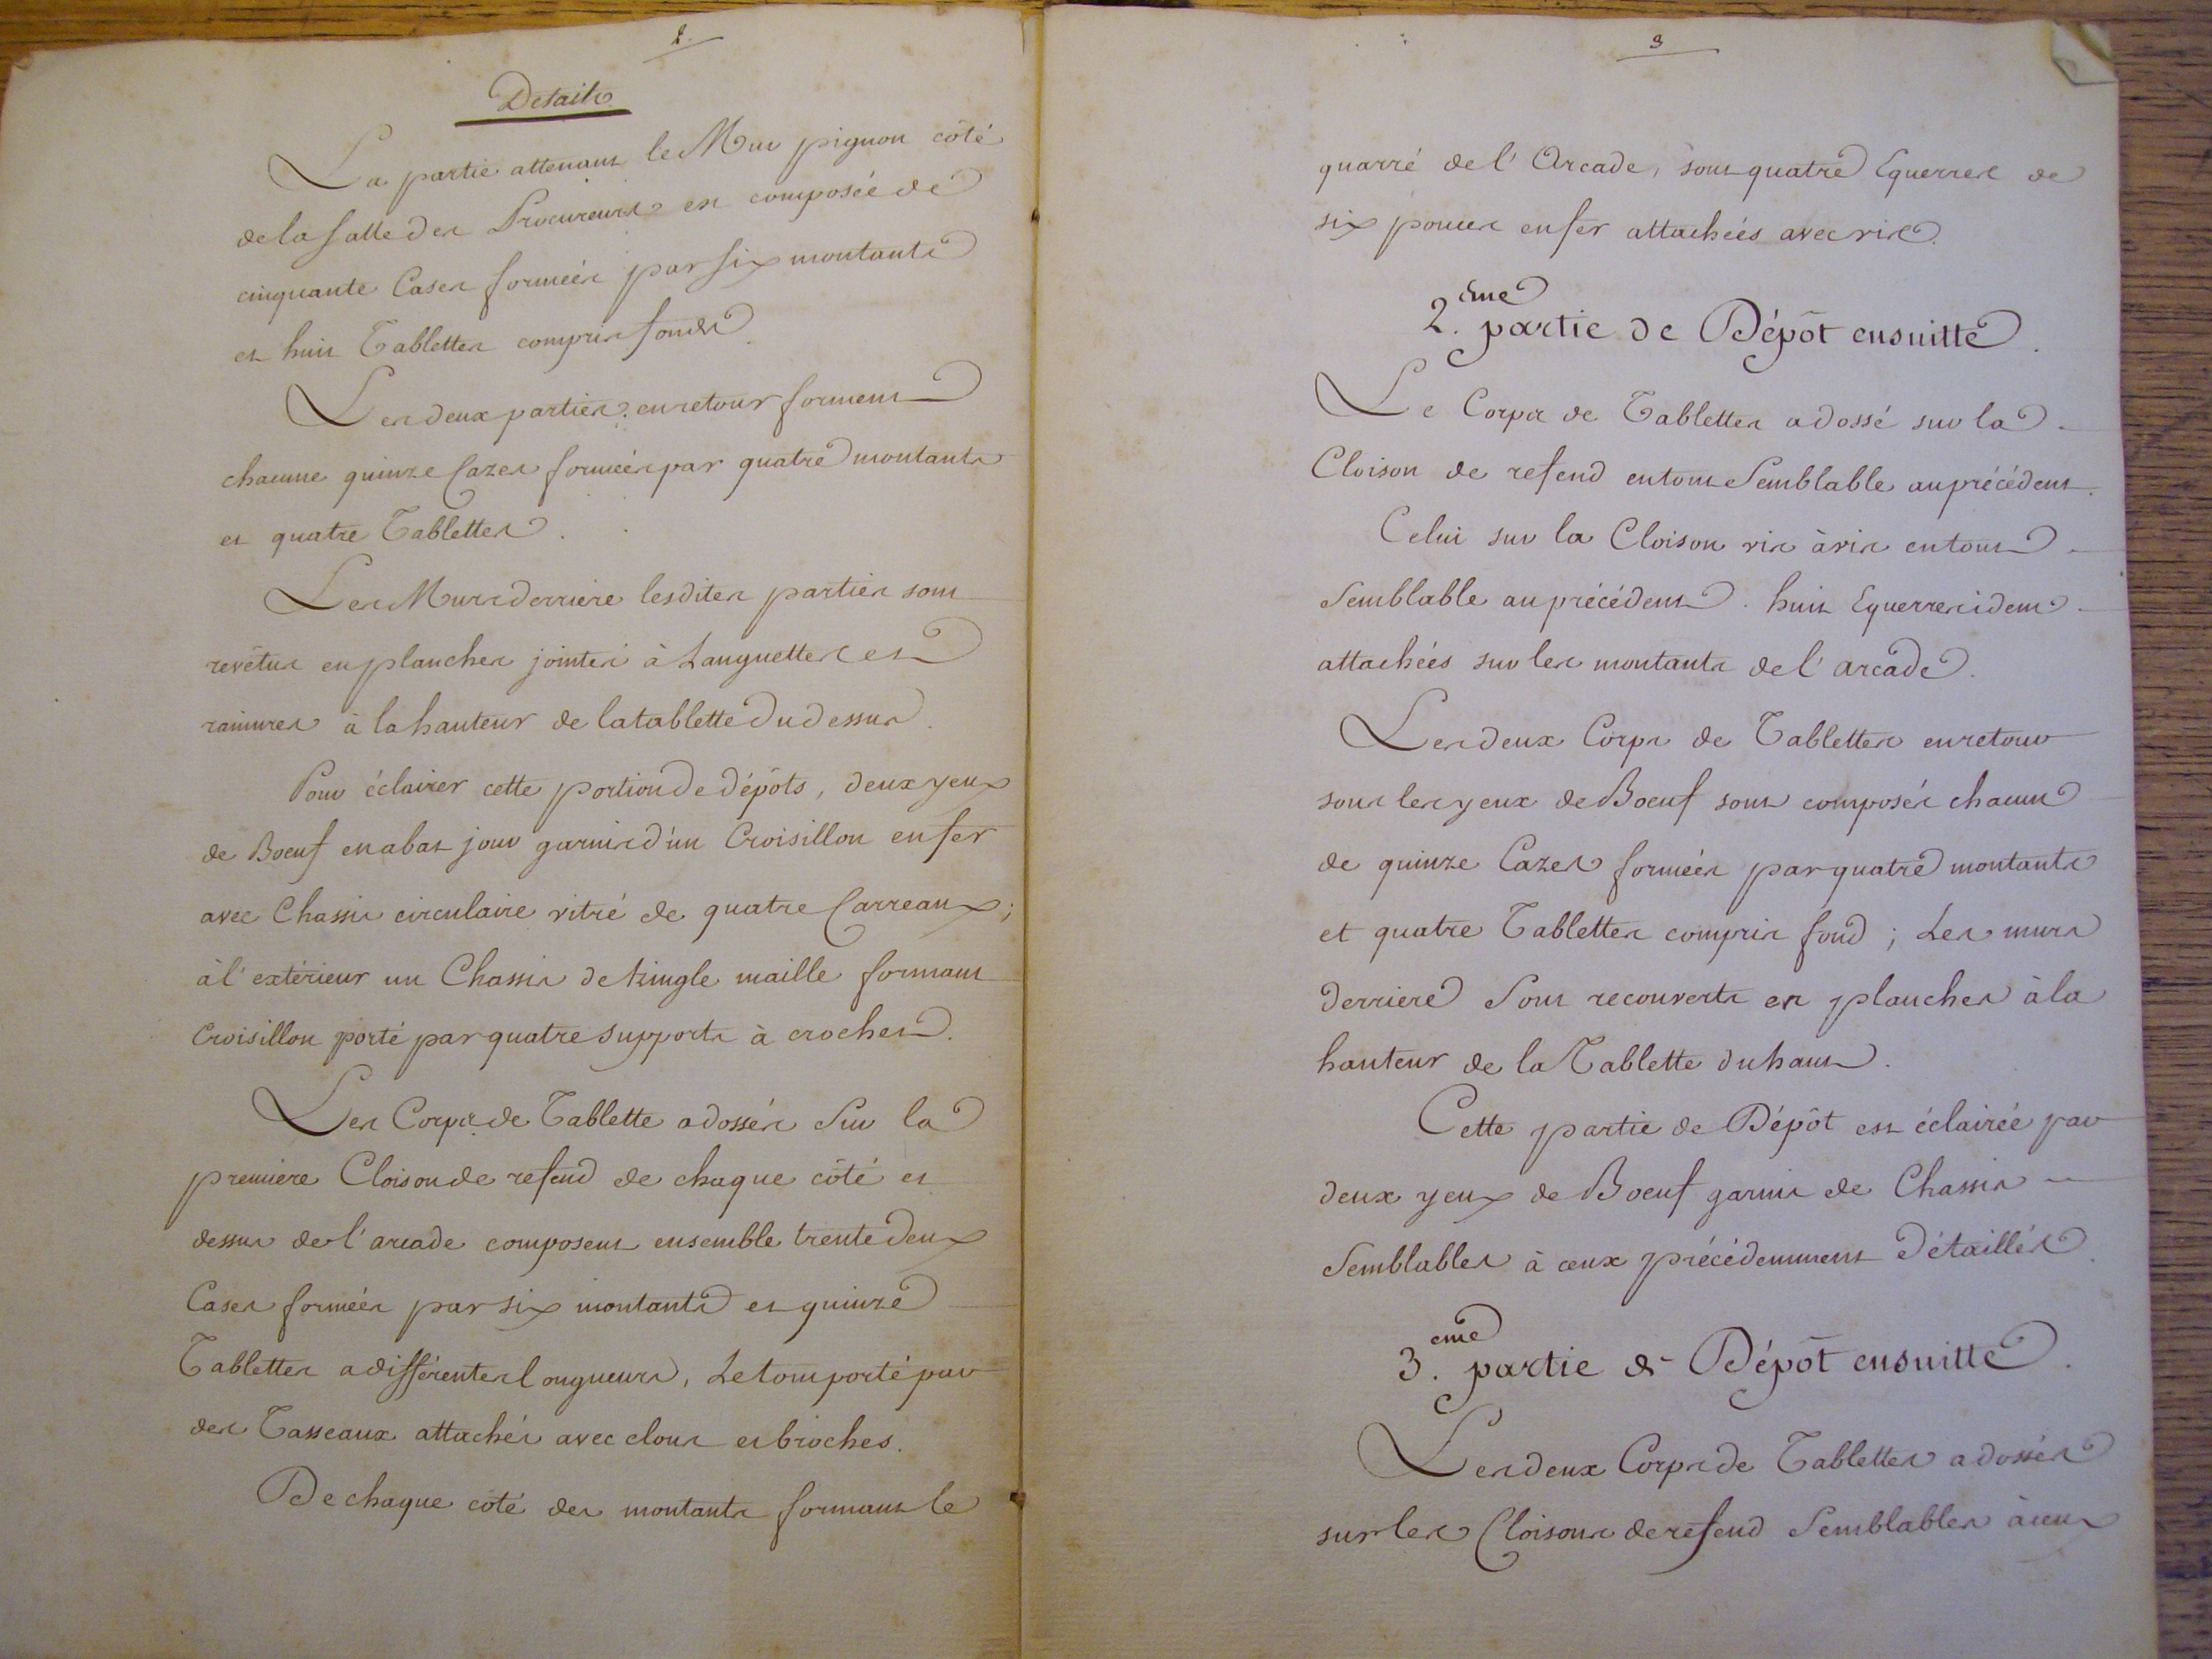 2
Details
La partie attenant le Mur pignon côté
de la Salle des Procureurs est composée de
cinquante Cases formées par six montants
et huit Tablettes compris fonds.
Les deux parties en retour forment
chacune quinze Cazes formées par quatre montants
et quatre Tablettes.
Les Murs derriere lesdites parties sont
revêtus en planches jointes à Languettes et
rainures à la hauteur de la tablette du dessus.
Pour éclairer cette portion de dépôts, deux yeux
de Boeuf en abat jour garnis d'un Croisillon en fer
avec Chassis circulaire vitré de quatre Carreaux;
à l'extérieur un Chassis de tringle maille formant
Croisillon porté par quatre supports à crochet.
Les Corps de Tablette adossés Sur la
premiere Cloison de refend de chaque côté et
dessus de l'arcade composent ensemble trente deux
Cases formées par six montants et quinze
Tablettes a différentes Longueurs, Le tout porté par
des Tasseaux attachés avec clous et broches.
De chaque côté des montants formant le
3
quarré de l'Arcade, sont quatre Equerres de
six pouces en fer attachées avec vis.
2.eme partie de Dépôt ensuitte.
Le Corps de Tablettes adossé sur la
Cloison de refend en tout Semblable au précédent.
Celui sur la Cloison vis à vis en tout
Semblable au précédent. huit Equerres idem
attachées sur les montants de l'arcade.
Les deux Corps de Tablettes en retour
sous les yeux de Boeuf sont composés chacun
de quinze Cazes formées par quatre montants
et quatre Tablettes compris fond; Les murs
derriere Sont recouverts en planches à la
hauteur de la Tablette du haut.
Cette partie de Dépôt est éclairée par
deux yeux de Boeuf garnis de Chassis
Semblables à ceux précédemment Détaillés
3.eme partie de Dépôt ensuitte.
Les deux Corps de Tablettes adossés
sur les Cloisons de refend Semblables à ceux